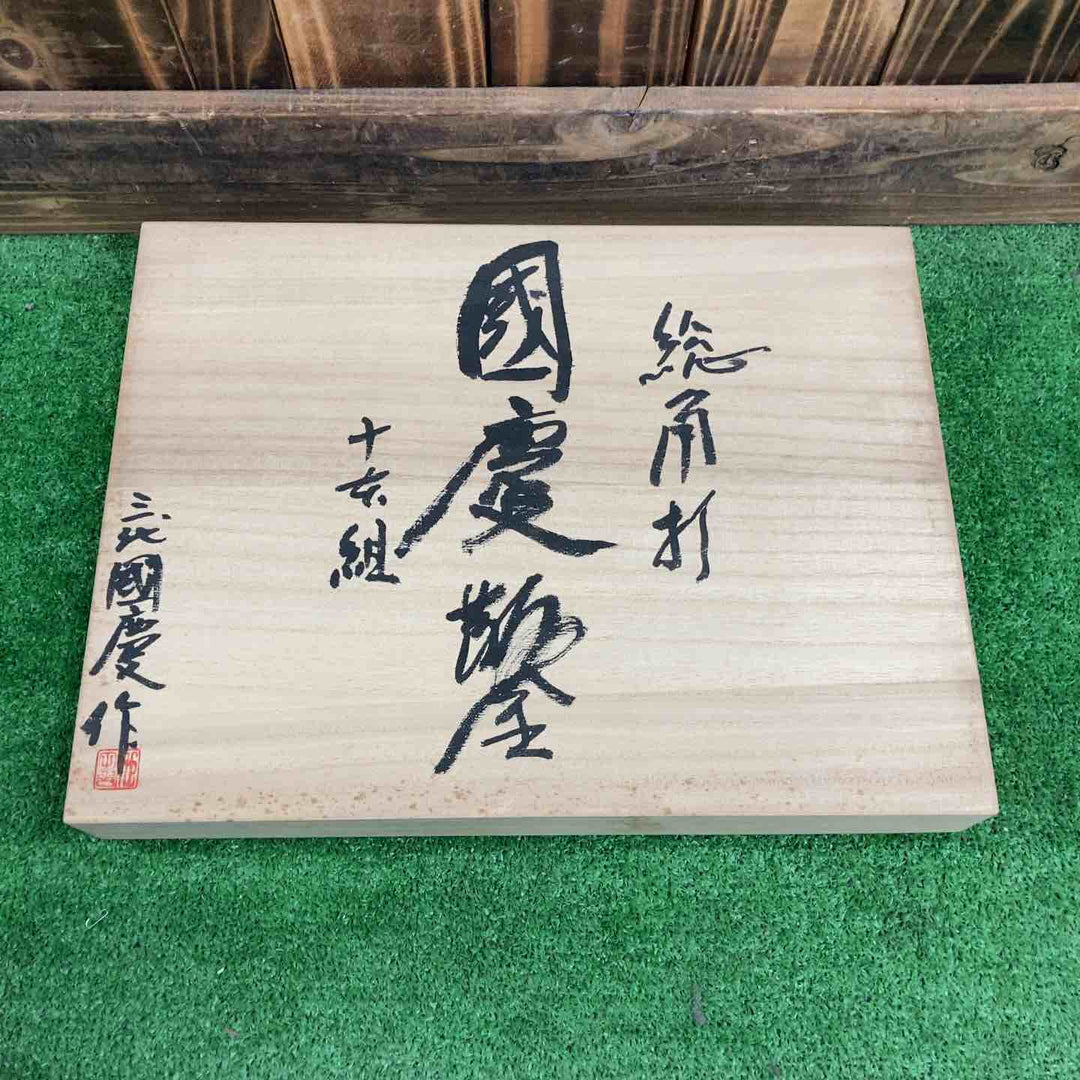 総角打
國慶鑿
十本組
三代國慶作